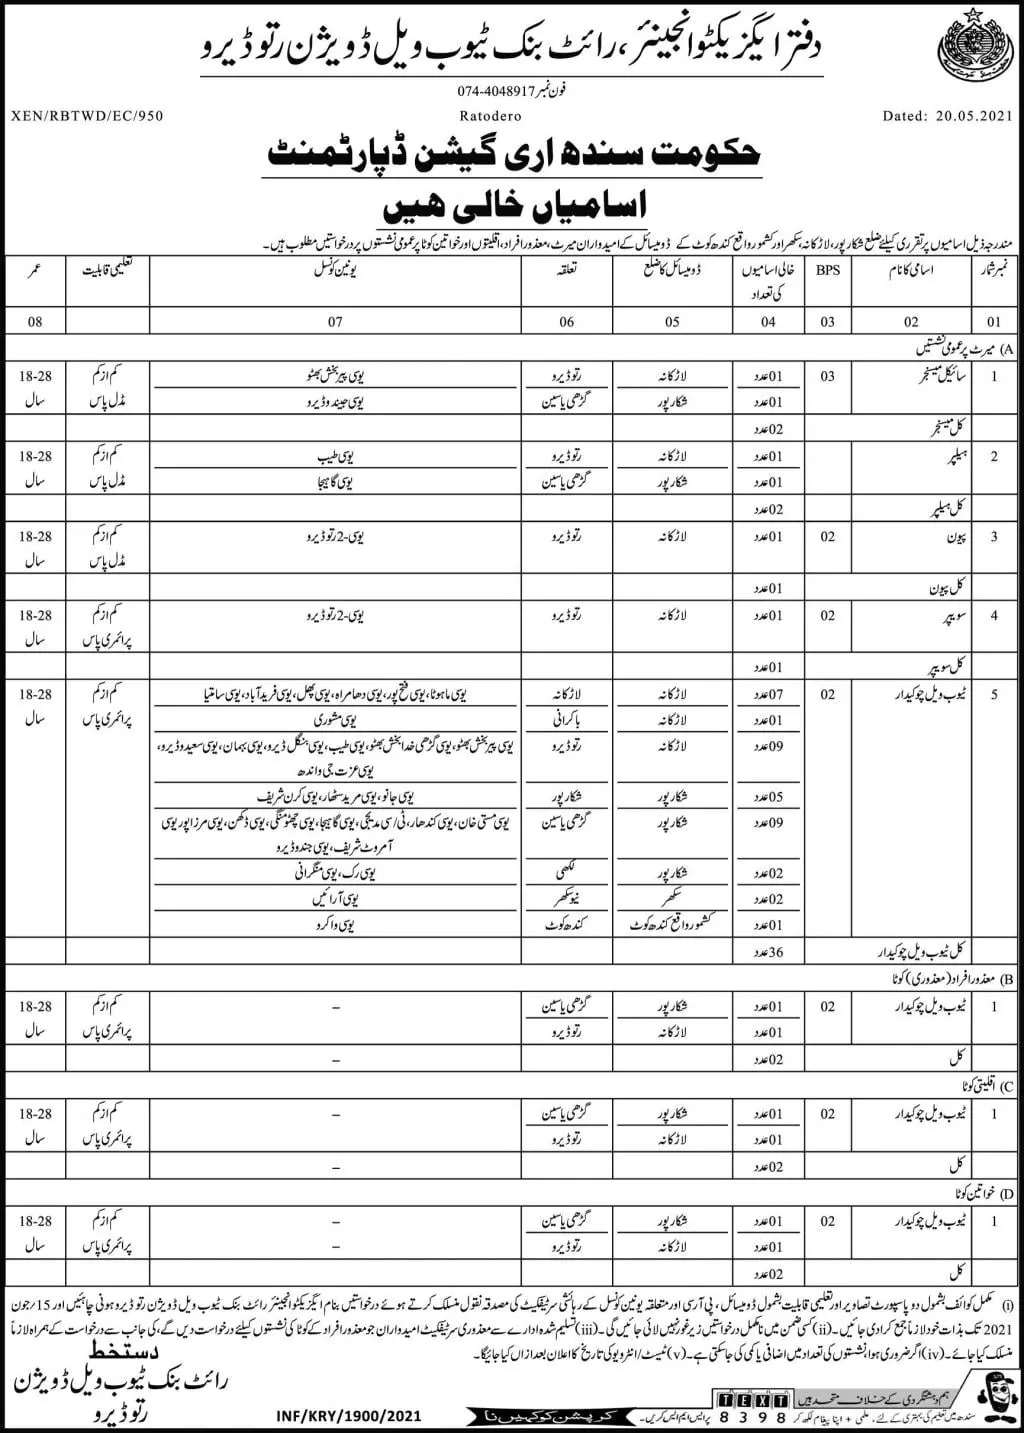 دفتر ایگزیکٹو انجینئر، رائٹ بنک ٹیوب ویل ڈویژن رتو ڈیرو
فون نمبر 074-4048917
XEN/RBTWD/EC/950 Ratodero Dated: 20.05.2021
حکومت سندھ اری گیشن ڈپارٹمنٹ
اسامیاں خالی ھیں
مندرجہ ذیل اسامیوں پر تقرری کیلئے ضلع شکارپور، لاڑکانہ، سکھر اور کشمور واقع کندھ کوٹ کے ڈومیسائل کے امیدواران میرٹ، معذور افراد، اقلیتوں اور خواتین کوٹا پر عمومی نشستوں پر درخواستیں مطلوب ہیں۔
نمبر شمار اسامی کا نام BPS خالی اسامیوں کی تعداد ڈومیسائل کا ضلع تعلقہ یونین کونسل تعلیمی قابلیت عمر
01 02 03 04 05 06 07 08
A) میرٹ پر عمومی نشستیں
1 سائیکل میسنجر 03 01عدد لاڑکانہ رتو ڈیرو یوسی پیر بخش بھٹو کم از کم 18-28
01عدد شکارپور گڑھی یاسین یوسی جیندو ڈیرو مڈل پاس سال
کل میسنجر 02عدد
2 ہیلپر 01عدد لاڑکانہ رتو ڈیرو یوسی طیب کم از کم 18-28
01عدد شکارپور گڑھی یاسین یوسی گاہیجا مڈل پاس سال
کل ہیلپر 02عدد
3 پیون 02 01عدد لاڑکانہ رتو ڈیرو یوسی-2 رتو ڈیرو کم از کم 18-28
مڈل پاس سال
کل پیون 01عدد
4 سویپر 02 01عدد لاڑکانہ رتو ڈیرو یوسی-2 رتو ڈیرو کم از کم 18-28
پرائمری پاس سال
کل سویپر 01عدد
5 ٹیوب ویل چوکیدار 02 07عدد لاڑکانہ لاڑکانہ یوسی ماہوٹا، یوسی فتح پور، یوسی دھامراہ، یوسی پھل، یوسی فرید آباد، یوسی سامتیا کم از کم 18-28
01عدد لاڑکانہ باکرانی یوسی مشوری پرائمری پاس سال
09عدد لاڑکانہ رتو ڈیرو یوسی پیر بخش بھٹو، یوسی گڑھی خدا بخش بھٹو، یوسی طیب، یوسی بنگل ڈیرو، یوسی بہمان، یوسی سعیدو ڈیرو،
یوسی عزت جی واندھ
05عدد شکارپور شکارپور یوسی جانو، یوسی مرید سٹھار، یوسی کرن شریف
09عدد شکارپور گڑھی یاسین یوسی مستی خان، یوسی کندھار، ٹی/سی مدیجی، یوسی گاہیجا، یوسی چھتو منگی، یوسی ڈکھن، یوسی مرزا پور یوسی
آمروٹ شریف، یوسی جندو ڈیرو
02عدد شکارپور لکھی یوسی رک، یوسی منگرانی
02عدد سکھر نیو سکھر یوسی آرائیں
01عدد کشمور واقع کندھ کوٹ کندھ کوٹ یوسی واکرو
کل ٹیوب ویل چوکیدار 36عدد
B) معذور افراد (معذوری) کوٹا
1 ٹیوب ویل چوکیدار 02 01عدد شکارپور گڑھی یاسین – کم از کم 18-28
01عدد لاڑکانہ رتو ڈیرو پرائمری پاس سال
کل 02عدد –
C) اقلیتی کوٹا
1 ٹیوب ویل چوکیدار 02 01عدد شکارپور گڑھی یاسین – کم از کم 18-28
01عدد لاڑکانہ رتو ڈیرو پرائمری پاس سال
کل 02عدد –
D) خواتین کوٹا
1 ٹیوب ویل چوکیدار 02 01عدد شکارپور گڑھی یاسین – کم از کم 18-28
01عدد لاڑکانہ رتو ڈیرو – پرائمری پاس سال
کل 02عدد
(i) مکمل کوائف بشمول دو پاسپورٹ تصاویر اور تعلیمی قابلیت بشمول ڈومیسائل، پی آر سی اور متعلقہ یونین کونسل کے رہائشی سرٹیفکیٹ کی مصدقہ نقول منسلک کرتے ہوئے درخواستیں بنام ایگزیکٹو انجینئر رائٹ بنک ٹیوب ویل ڈویژن رتو ڈیرو ہونی چاہئیں اور 15/جون
2021 تک بذات خود لازماً جمع کرا دی جائیں۔ (ii) کسی ضمن میں نامکمل درخواستیں زیر غور نہیں لائی جائیں گی۔ (iii) تسلیم شدہ ادارے سے معذوری سرٹیفکیٹ امیدواران جو معذور افراد کے کوٹا کی نشستوں کیلئے درخواست دیں گے، کی جانب سے درخواست کے ہمراہ لازماً
منسلک کیا جائے۔ (iv) اگر ضروری ہوا نشستوں کی تعداد میں اضافہ یا کمی کی جاسکتی ہے۔ (v) ٹیسٹ/انٹرویو کی تاریخ کا اعلان بعد ازاں کیا جائیگا۔
دستخط
رائٹ بنک ٹیوب ویل ڈویژن
رتو ڈیرو
INF/KRY/1900/2021
کرپشن کو کہیں نا
ہم دہشتگردی کے خلاف متحد ہیں
TEXT
8398 پر ایس ایم ایس کریں۔
سندھ میں تعلیم کی بہتری کے لئے۔ علمی + اپنا پیغام لکھ کر